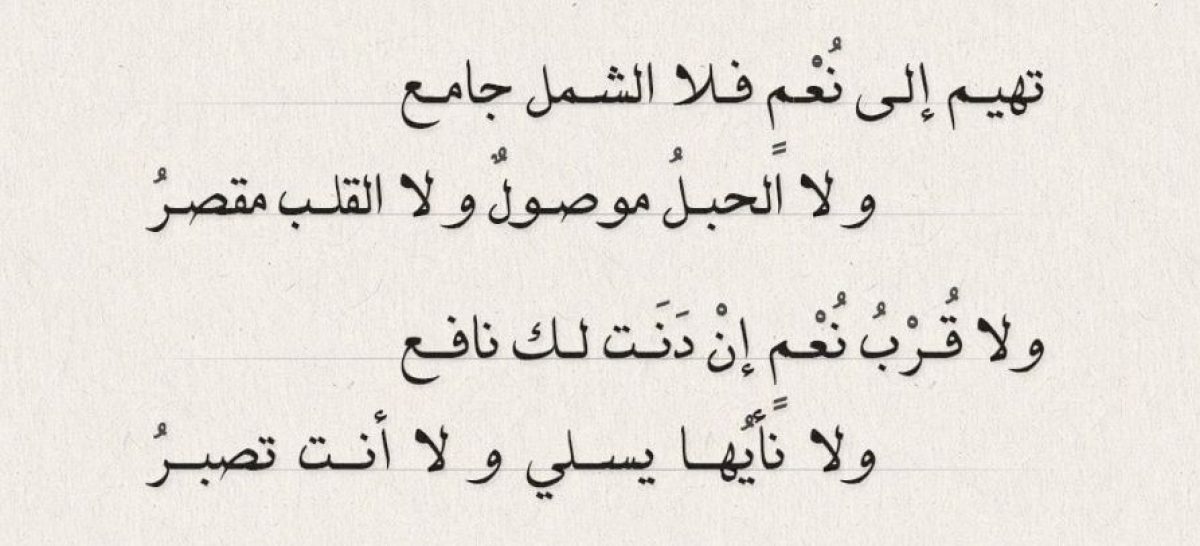 تهيم إلى نُعْمٍ فلا الشمل جامع
ولا الحبلُ موصولٌ ولا القلب مقصرُ
ولا قُرْبُ نُعْمٍ إنْ دَنَت لك نافع
ولا نأيُها يسلي ولا أنت تصبرُ